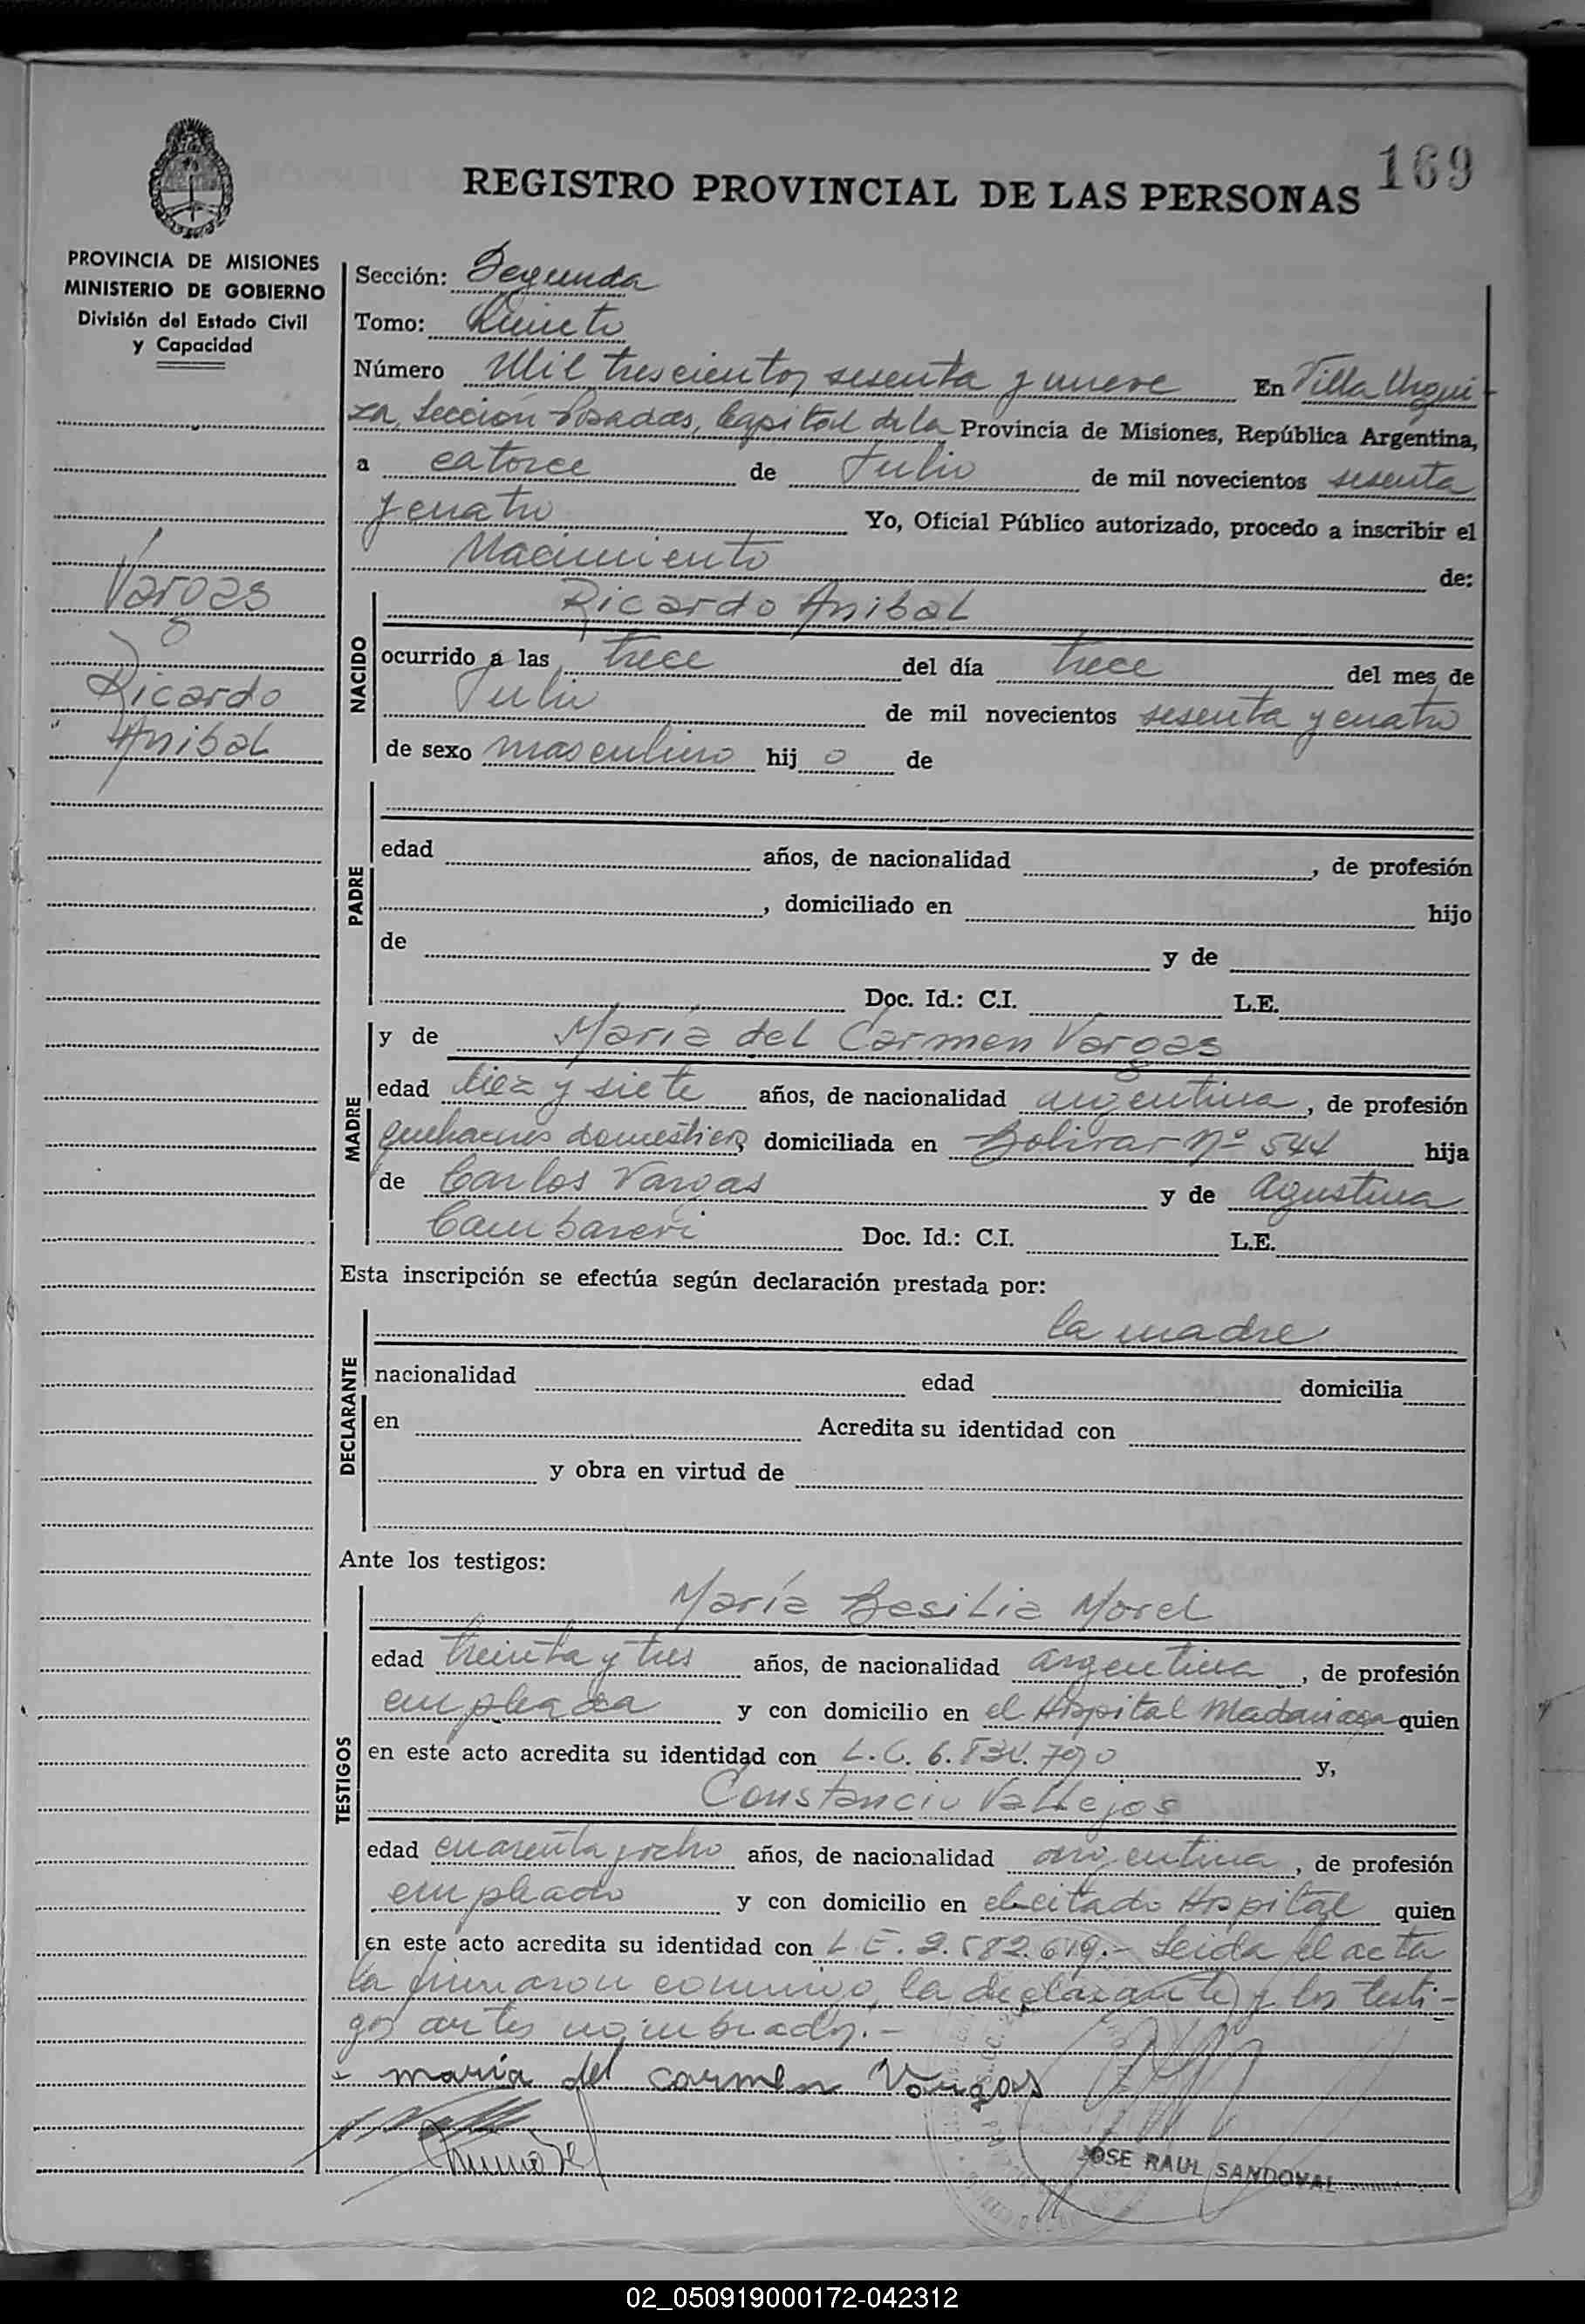 169
REGISTRO PROVINCIAL DE LAS PERSONAS
PROVINCIA DE MISIONES
MINISTERIO DE GOBIERNO
División del Estado Civil
y Capacidad
Vargas
Ricardo
Anibal
Sección: Segunda
Tomo: Quinto
Número Mil trescientos sesenta y nueve En Villa Urqui-
za, Sección Posadas, Capital de la Provincia de Misiones, República Argentina,
a catorce de Julio de mil novecientos sesenta
y cuatro Yo, Oficial Público autorizado, procedo a inscribir el
Nacimiento de:
NACIDO
Ricardo Anibal
ocurrido a las trece del día trece del mes de
Julio de mil novecientos sesenta y cuatro
de sexo masculino hij o de
PADRE
edad años, de nacionalidad , de profesión
, domiciliado en hijo
de y de
Doc. Id.: C.I. L.E.
MADRE
y de María del Carmen Vargas
edad diez y siete años, de nacionalidad argentina, de profesión
quehaceres domesticos domiciliada en Bolivar nº 544 hija
de Carlos Vargas y de Agustina
Cambareri Doc. Id.: C.I. L.E.
Esta inscripción se efectúa según declaración prestada por:
DECLARANTE
la madre
nacionalidad edad domicilia
en Acredita su identidad con
y obra en virtud de
Ante los testigos:
TESTIGOS
María Basilia Morel
edad treinta y tres años, de nacionalidad argentina, de profesión
empleada y con domicilio en el Hospital Madariaga quien
en este acto acredita su identidad con L.C. 6. y,
Constancio Vallejos
edad cuarenta y ocho años, de nacionalidad argentina, de profesión
empleado y con domicilio en el citado Hospital quien
en este acto acredita su identidad con L.E. 2.582.619.- Leida el acta
la firmaron conmigo, la declarante y los testi-
gos antes nombrados.-
maria del carmen Vargas
JOSE RAUL SANDOVAL
02_050919000172-042312